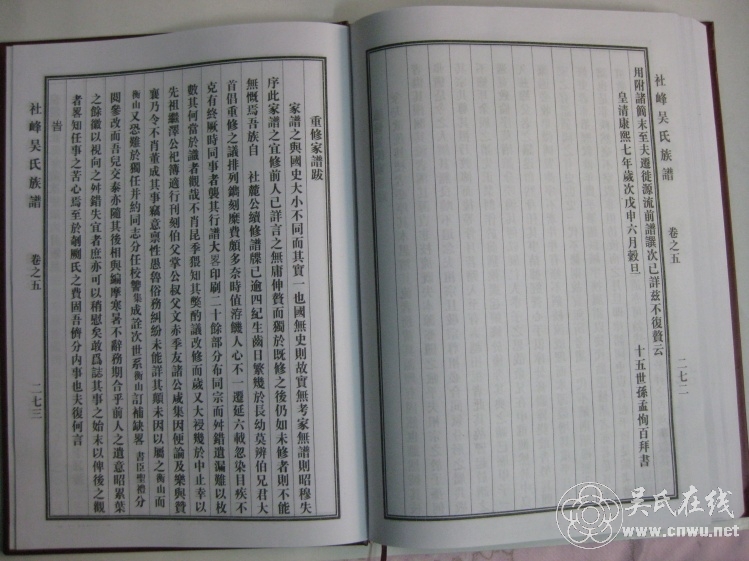 社峰吴氏族譜
卷之五
二七二
用附諸簡末至夫遷徙源流前譜譔次已詳茲不復贅云
皇清康熙七年歲次戊申六月穀旦
十五世孫孟恂百拜書
重修家譜跋
家譜之與國史大小不同而其實一也國無史則故實無考家無譜則昭穆失
序此家譜之宜修前人已詳言之無庸伸贅而獨於既修之後仍如未修者則不能
無慨焉吾族自 社麓公續修譜牒已逾四紀生齒日繁幾於長幼莫辨伯兄君大
首倡重修之議排列鐫刻糜費頗多奈時值洊饑人心不一遷延六載忽染目疾不
克有終厥時同事者襲其行譜大畧印刷二十餘部分布同宗而舛錯遺漏難以枚
數其何當於譏者觀哉不肖昆季猥知其獘酌議改修而歲又大祲幾於中止幸以
先祖繼澤公祀薄適行刊刻伯父掌公叔父文亦季友諸公咸集因便論及樂與贊
襄乃令不肖董成其事竊意禀性愚魯俗務糾紛未能詳其顛末因以屬之衡山而
衡山又恐難於獨任并約同志分任校讐集成詮次世系衡山訂補缺畧書臣聖禮分
閱參改而吾兒交泰亦隨其後相與編摩寒暑不辭務期合乎前人之遺意昭累葉
之餘徽以視向之舛錯失宜者庶亦可以稍慰矣敢爲誌其事之始末以俾後之觀
者畧知任事之苦心焉至於剞劂氏之費固吾儕分内事也夫復何言
旹
社峰吴氏族譜
卷之五
二七三
吴氏在线
www.cnwu.net